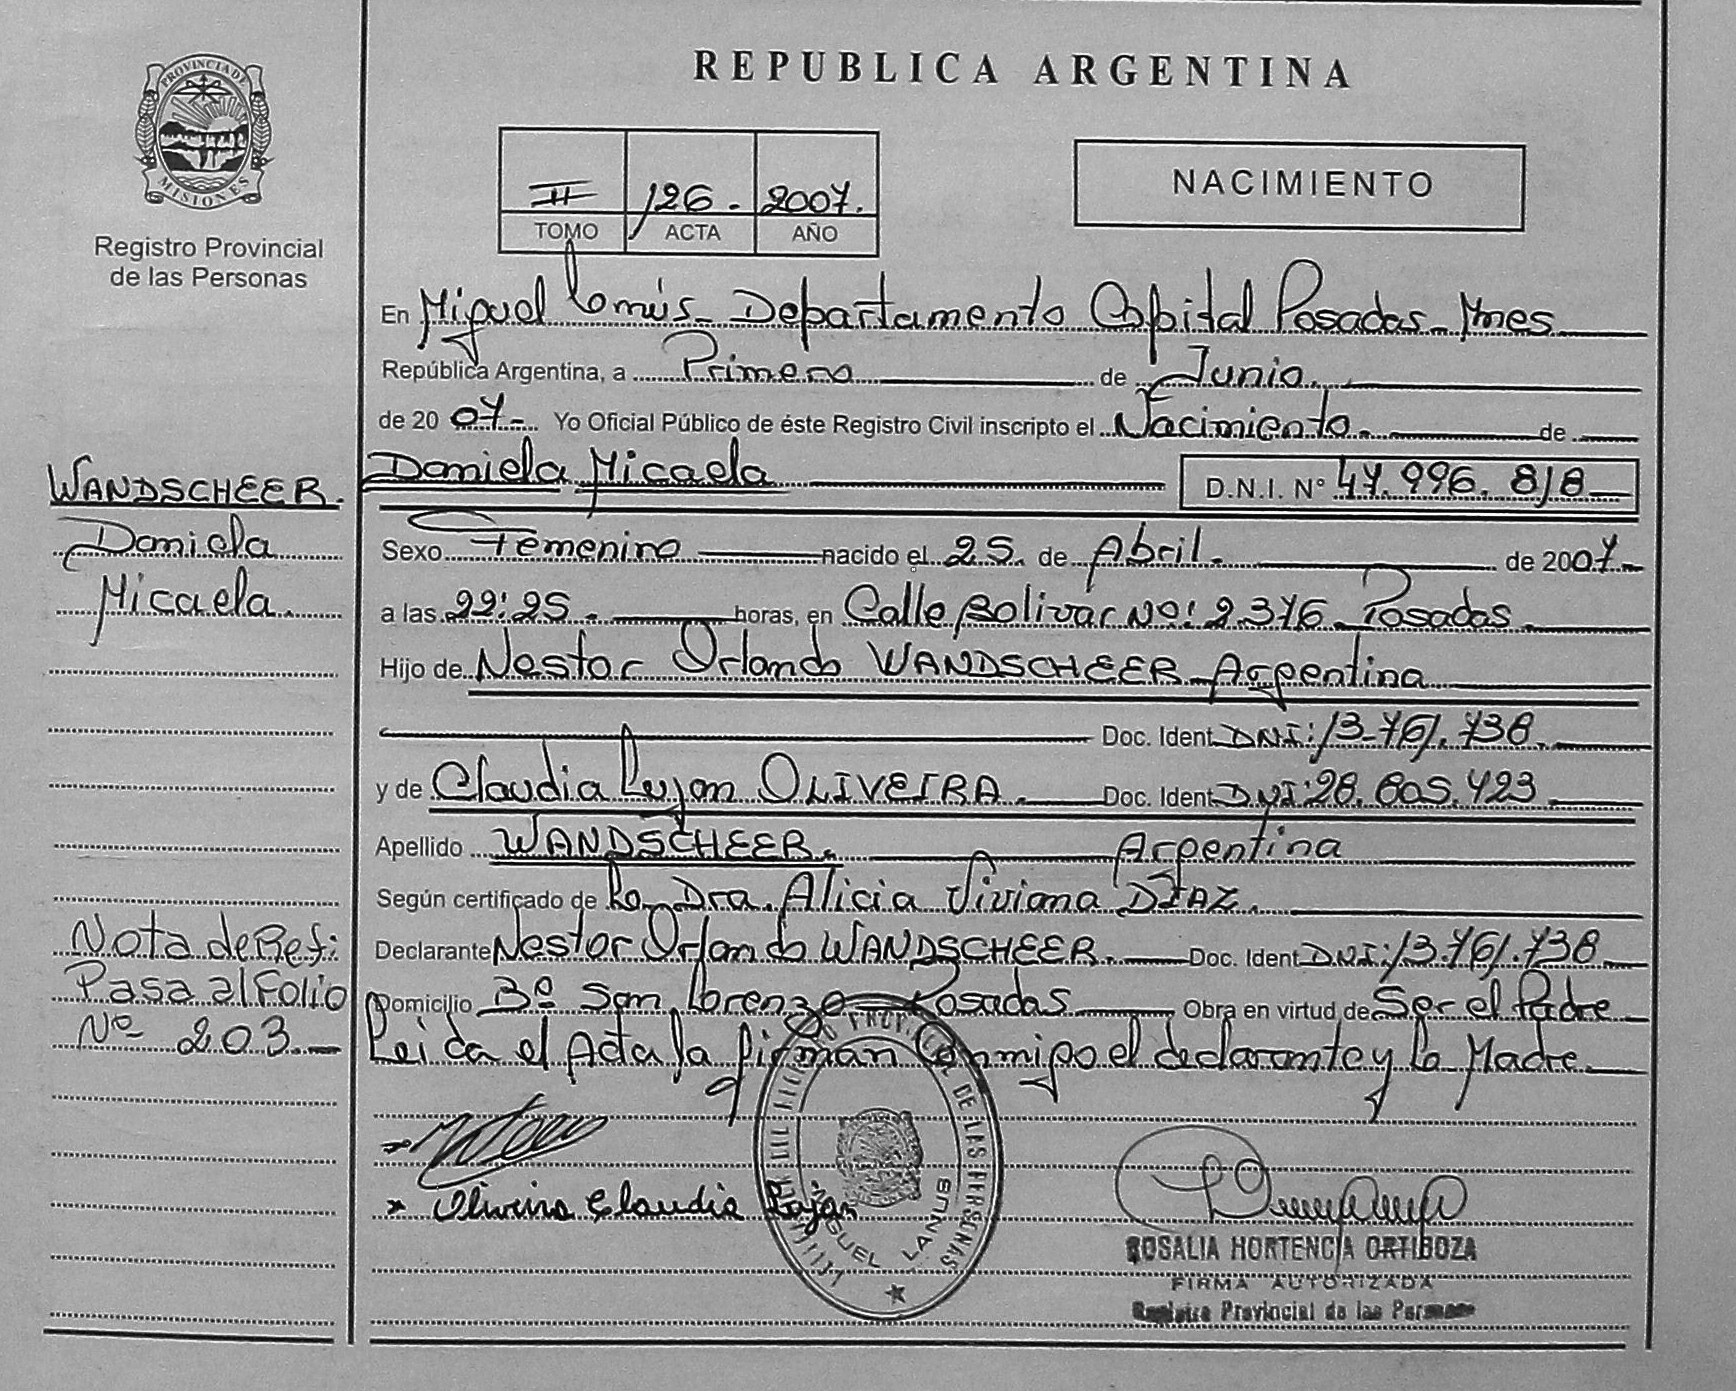 PROVINCIA DE
MISIONES
Registro Provincial
de las Personas
REPUBLICA ARGENTINA
II 126. 2007.
TOMO ACTA AÑO
NACIMIENTO
En Miguel Lanús. Departamento Capital Posadas. Mnes
República Argentina, a Primero de Junio.
de 20 07- Yo Oficial Público de éste Registro Civil inscripto el Nacimiento. de
Daniela Micaela D.N.I. N° 47.996.818
Sexo Femenino nacido el 25. de Abril. de 2007
a las 22:25. horas, en Calle Bolivar Nº: 2376. Posadas
Hijo de Nestor Orlando WANDSCHEER Argentina
Doc. Ident DNI: 13.761.738.
y de Claudia Lujan OLIVEIRA. Doc. Ident DNI: 28.605.423
Apellido WANDSCHEER. Argentina
Según certificado de La Dra. Alicia Viviana DÍAZ.
Declarante Nestor Orlando WANDSCHEER. Doc. Ident DNI: 13.761.738
Domicilio Bº San Lorenzo Posadas Obra en virtud de Ser el Padre
Leida el Acta la firman Conmigo el declarante y la Madre.
WANDSCHEER.
Daniela
Micaela.
Nota de Ref:
Pasa al Folio
Nº 203.
Oliveira Claudia Lujan
DE LAS PERSONAS
MIGUEL LANUS
ROSALIA HORTENCIA ORTIGOZA
FIRMA AUTORIZADA
Registro Provincial de las Personas